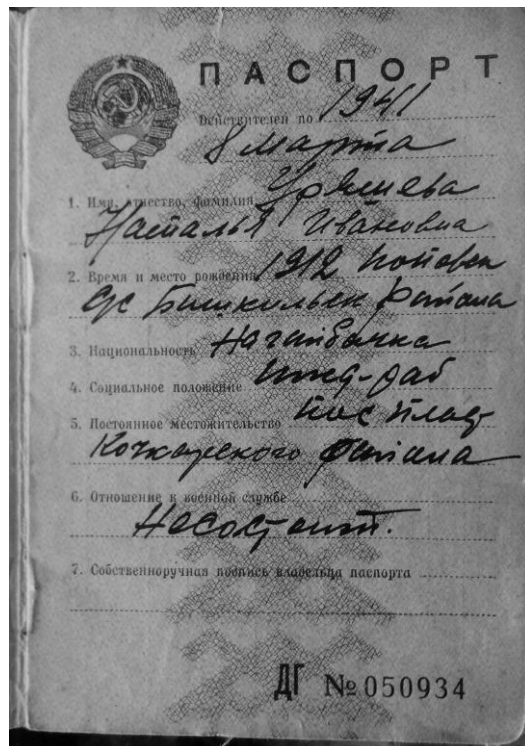 ПАСПОРТ
Действителен по 1941
8 марта
1. Имя, отчество, фамилия Уряшева
Наталья Ивановна
2. Время и место рождения 1912
района
3. Национальность Нагайбачка
4. Социальное положение
5. Постоянное местожительство пос Пласт
Кочкарского района
6. Отношение к военной службе
Несостоит.
7. Собственноручная подпись владельца паспорта
ДГ № 050934